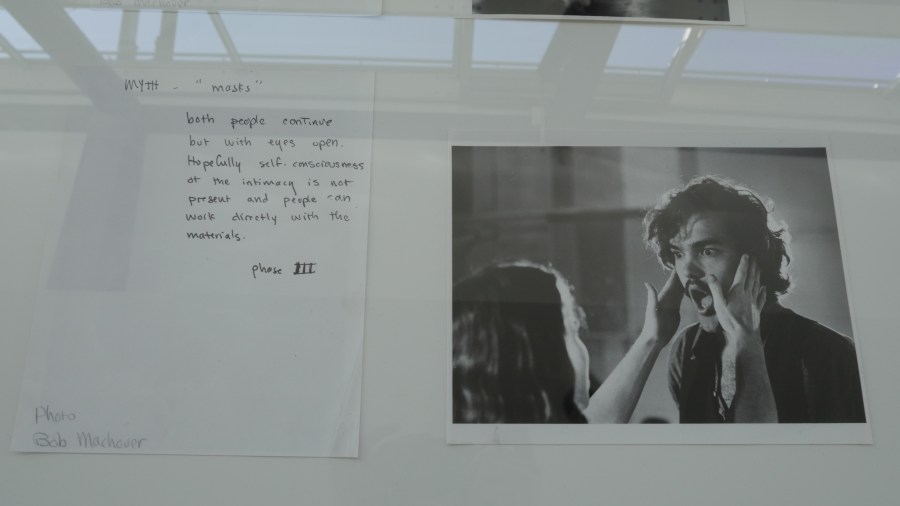 MYTH - "masks"
both people continue
but with eyes open.
Hopefully self-consciousness
of the intimacy is not
present and people can
work directly with the
materials.
phase III
Photo
Bob Machover